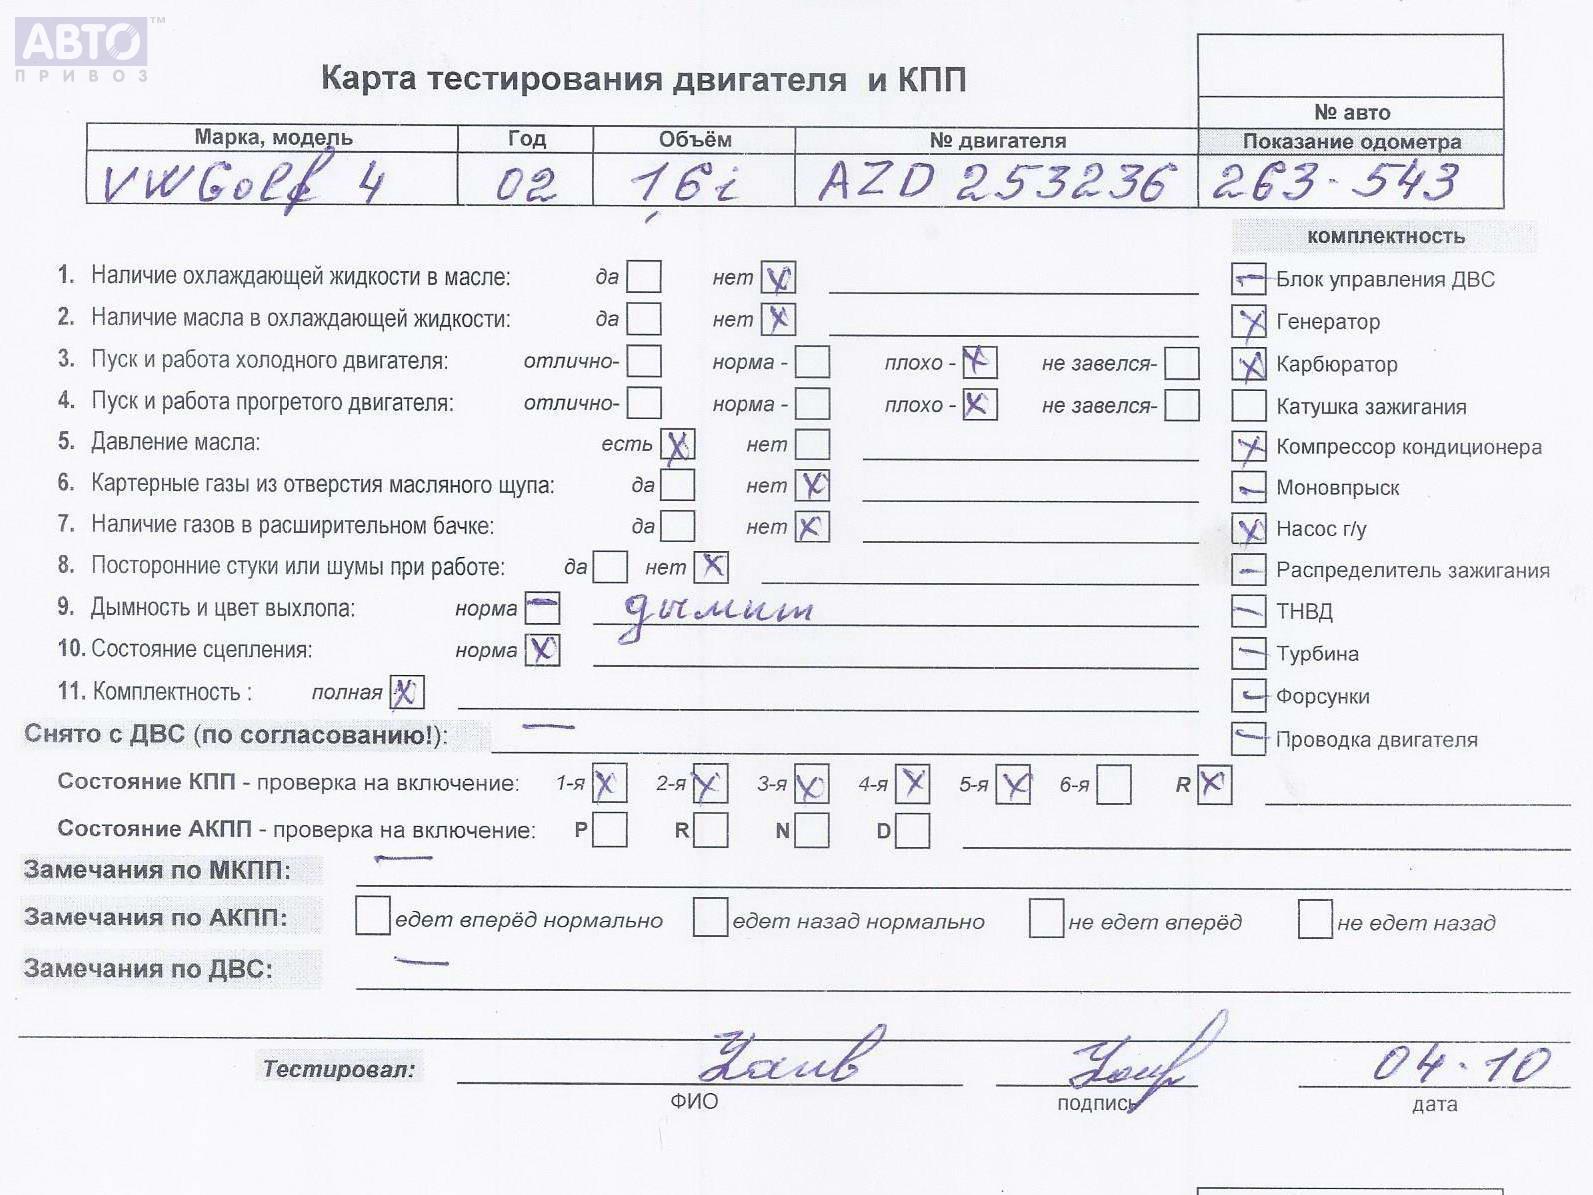 АВТО™
ПРИВОЗ
Карта тестирования двигателя и КПП
№ авто
Марка, модель Год Объём № двигателя Показание одометра
VW Golf 4 02 1,6i AZD 253236 263-543
комплектность
1. Наличие охлаждающей жидкости в масле: да нет X
2. Наличие масла в охлаждающей жидкости: да нет X
3. Пуск и работа холодного двигателя: отлично- норма - плохо - X не завелся-
4. Пуск и работа прогретого двигателя: отлично- норма - плохо - X не завелся-
5. Давление масла: есть X нет
6. Картерные газы из отверстия масляного щупа: да нет X
7. Наличие газов в расширительном бачке: да нет X
8. Посторонние стуки или шумы при работе: да нет X
9. Дымность и цвет выхлопа: норма — дымит
10. Состояние сцепления: норма X
11. Комплектность : полная X
— Блок управления ДВС
X Генератор
X Карбюратор
Катушка зажигания
X Компрессор кондиционера
— Моновпрыск
X Насос г/у
— Распределитель зажигания
— ТНВД
— Турбина
— Форсунки
— Проводка двигателя
Снято с ДВС (по согласованию!): —
Состояние КПП - проверка на включение: 1-я X 2-я X 3-я X 4-я X 5-я X 6-я R X
Состояние АКПП - проверка на включение: P R N D
Замечания по МКПП: —
Замечания по АКПП: едет вперёд нормально едет назад нормально не едет вперёд не едет назад
Замечания по ДВС: —
Тестировал: 04.10
ФИО подпись дата